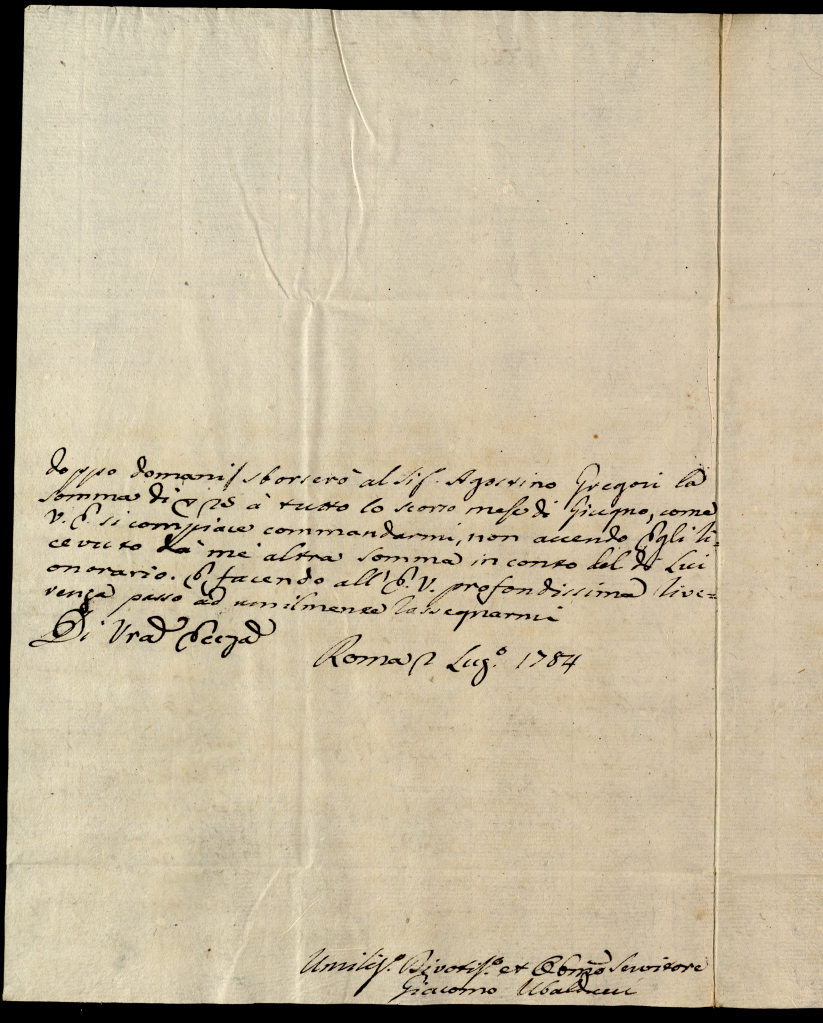 doppo domani sborserò al Sig.r Agostino Gregori la
somma di à tutto lo scorso mese di Giugno, come
V. E. si compiace commandarmi, non avendo Egli ri=
cevuto da me altra somma in conto del di Lui
onorario. E facendo all' E. V. profondissima rive=
renza passo ad umilmente rassegnarmi
Di Vra Eccza
Roma Lug.o 1784
Umilis.o Divotis.o et Obmo Servitore
Giacomo Ubalducci